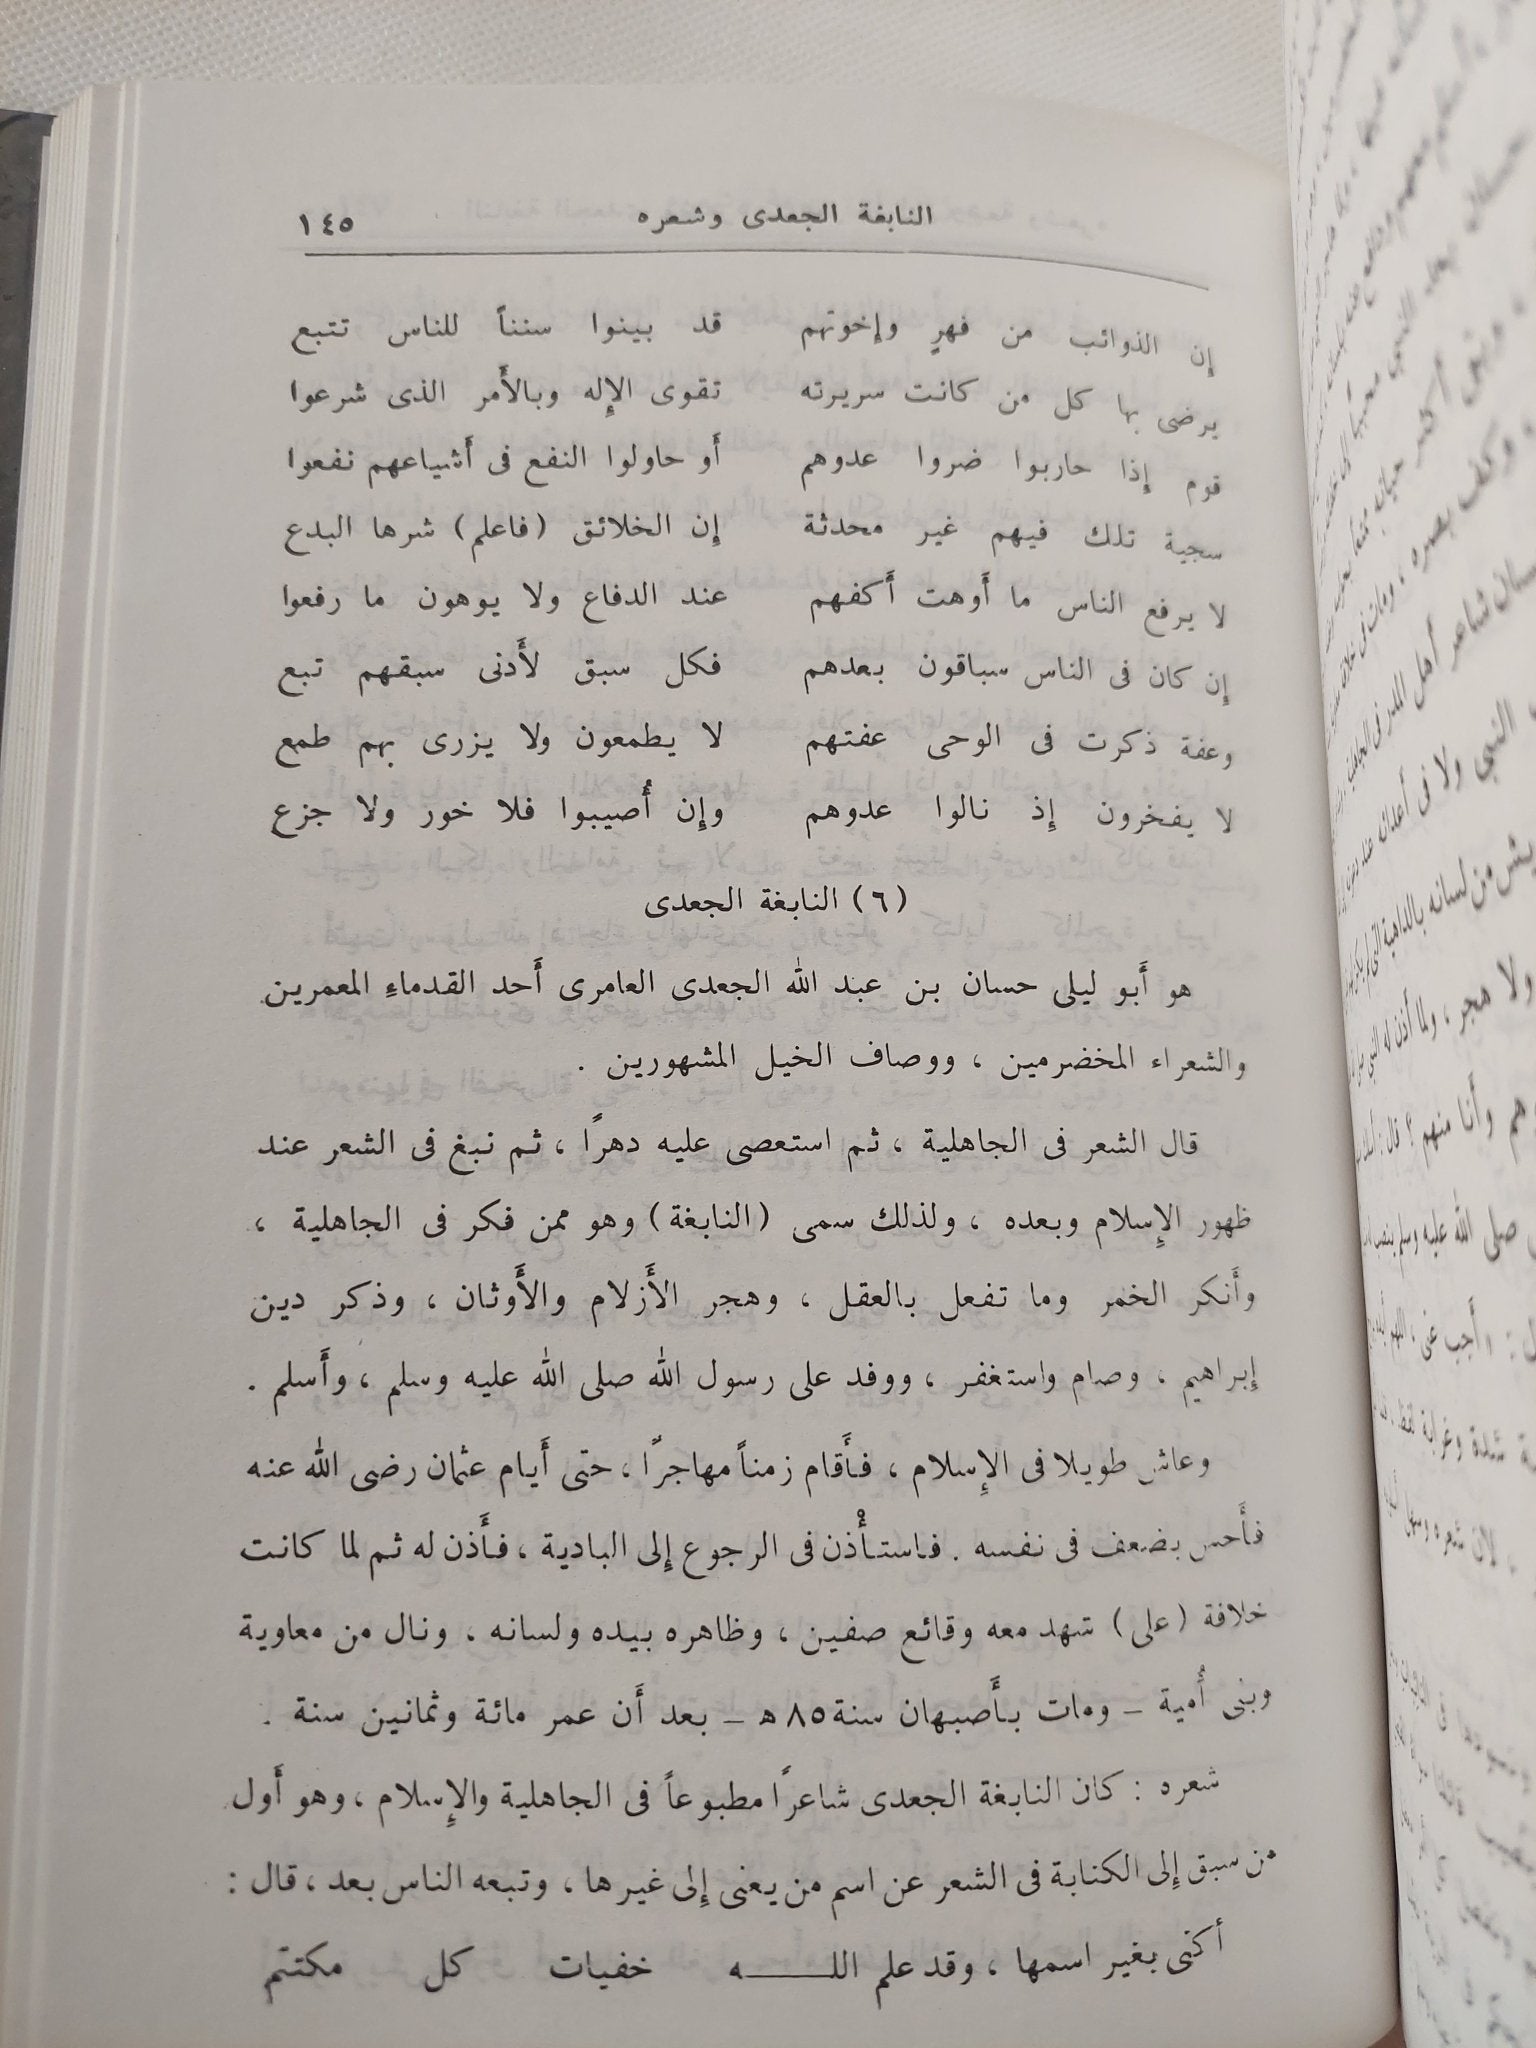 النابغة الجعدى وشعره ١٤٥
إن الذوائب من فهرٍ وإخوتهم قد بينوا سنناً للناس تتبع
يرضى بها كل من كانت سريرته تقوى الإله وبالأمر الذى شرعوا
قوم إذا حاربوا ضروا عدوهم أو حاولوا النفع فى أشياعهم نفعوا
سجية تلك فيهم غير محدثة إن الخلائق (فاعلم) شرها البدع
لا يرفع الناس ما أوهت أكفهم عند الدفاع ولا يوهون ما رفعوا
إن كان فى الناس سباقون بعدهم فكل سبق لأدنى سبقهم تبع
وعفة ذكرت فى الوحى عفتهم لا يطمعون ولا يزرى بهم طمع
لا يفخرون إذ نالوا عدوهم وإن أُصيبوا فلا خور ولا جزع
(٦) النابغة الجعدى
هو أبو ليلى حسان بن عبد الله الجعدى العامرى أحد القدماءِ المعمرين
والشعراء المخضرمين ، ووصاف الخيل المشهورين .
قال الشعر فى الجاهلية ، ثم استعصى عليه دهرًا ، ثم نبغ فى الشعر عند
ظهور الإسلام وبعده ، ولذلك سمى (النابغة) وهو ممن فكر فى الجاهلية ،
وأنكر الخمر وما تفعل بالعقل ، وهجر الأزلام والأوثان ، وذكر دين
إبراهيم ، وصام واستغفر ، ووفد على رسول الله صلى الله عليه وسلم ، وأسلم .
وعاش طويلا فى الإسلام ، فأقام زمناً مهاجرًا ، حتى أيام عثمان رضى الله عنه
فأحس بضعف فى نفسه . فاستأْذن فى الرجوع إلى البادية ، فأذن له ثم لما كانت
خلافة (على) شهد معه وقائع صفين ، وظاهره بيده ولسانه ، ونال من معاوية
وبنى أُمية – ومات بأصبهان سنة ٨٥ ه – بعد أن عمر مائة وثمانين سنة .
شعره : كان النابغة الجعدى شاعرًا مطبوعاً فى الجاهلية والإسلام ، وهو أول
من سبق إلى الكناية فى الشعر عن اسم من يعنى إلى غيرها ، وتبعه الناس بعد ، قال :
أكنى بغير اسمها ، وقد علم اللـــــه خفيات كل مكتتم